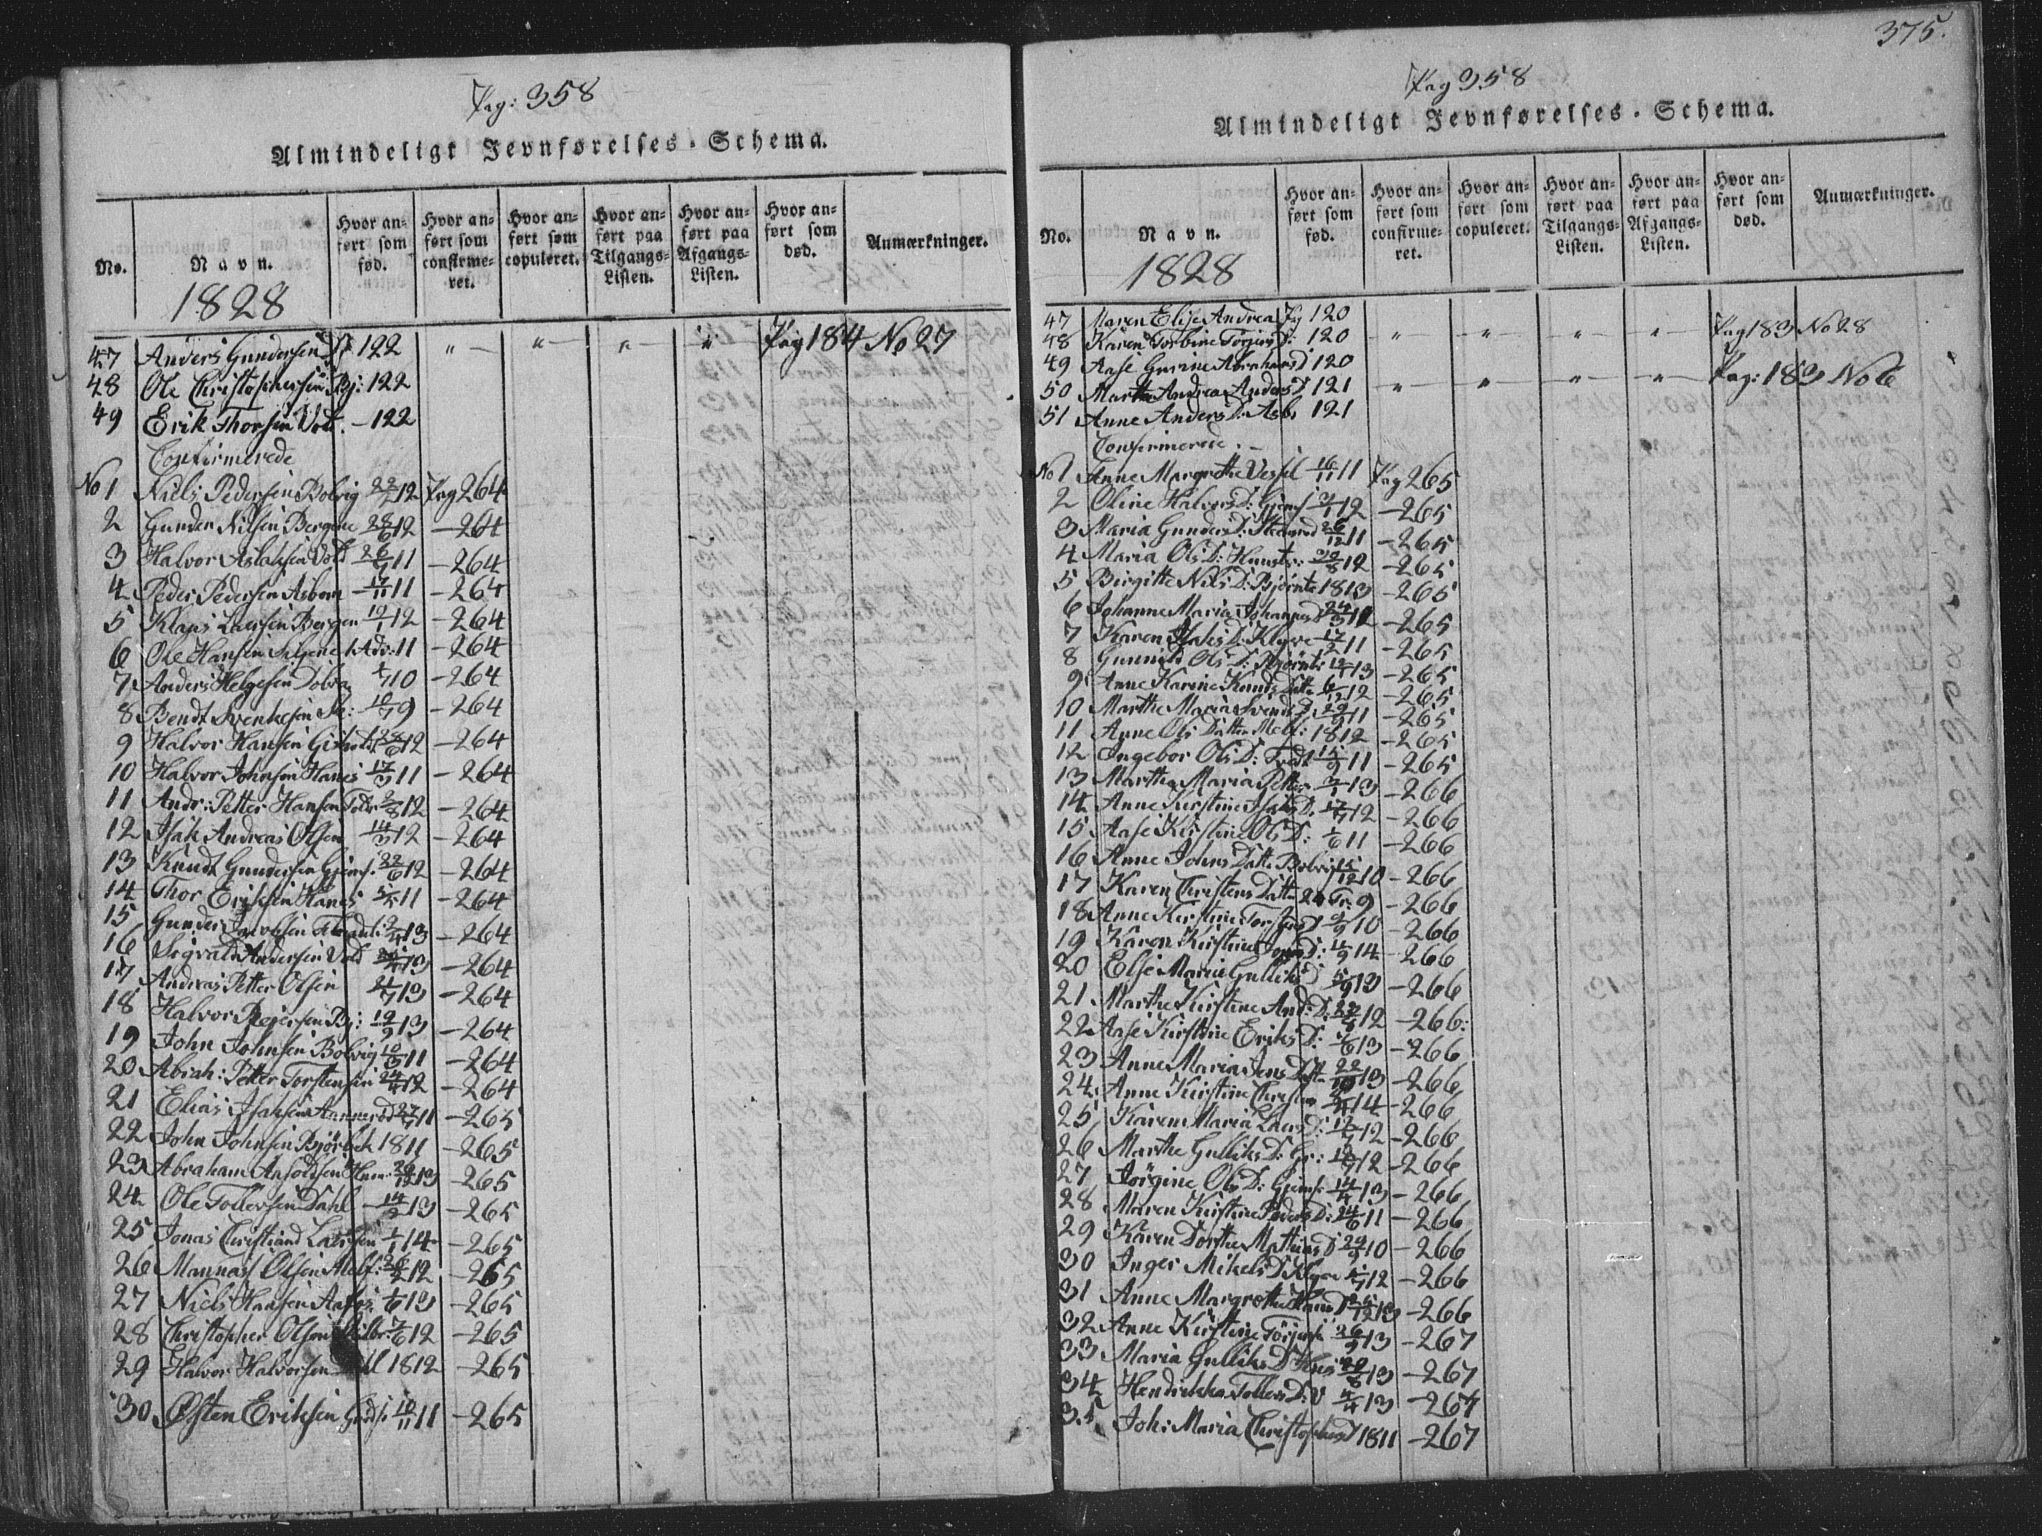 375.
Pag: 358
Almindeligt Jevnførelses-Schema.
No.
Navn.
1828
Hvor anført som fød.
Hvor anført som confirmeret.
Hvor anført som copuleret.
Hvor anført paa Tilgangs-Listen.
Hvor anført paa Afgangs-Listen.
Hvor anført som død.
Anmærkninger.
47 Anders Gundersen 122 " " " " Pag 184 No 27
48 Ole Christophersen Bj: 122
49 Erik Thorsen Vold. - 122
Confirmerede
No 1 Niels Pedersen Bolvig 12 Pag 264
2 Gunder Nilsen Bergene 12 -264
3 Halvor Aslaksen Vold 11 -264
4 Peder Pedersen Asbom 17/11 11 -264
5 Klaus Larsen Bergen 12 -264
6 Ole Hansen Selgene 1 Adv: 11 -264
7 Anders Helgesen Dobra 10 -264
8 Bendt Svenkesen 9 -264
9 Halvor Hansen 12 -264
10 Halvor Johnsen Hanes 17/3 11 -264
11 Andr: Petter Hansen 12 -264
12 Isak Andreas Olsen 14/3 12 -264
13 Knudt Gundersen Gjems. 22/6 12 -264
14 Thor Eriksen Hanes 11 -264
15 Gunder Jacobsen 13 -264
16 Sigvald Andersen Vold 13 -264
17 Andreas Petter Olsen 13 -264
18 Halvor Reiersen Bj: 19/9 13 -264
19 John Johnsen Bolvig 11 -264
20 Abrah: Petter Torstensen 12 -264
21 Elias Isaksen 11 -265
22 John Johnsen 1811 -265
23 Abraham 13 -265
24 Ole Tollevsen Dahl 14/2 13 -265
25 Jonas Christiand Larsen 1/1 14 -265
26 Mannas Olsen Melb: 12 -265
27 Niels Hansen 13 -265
28 Christopher Olsen 12 -265
29 Halvor Halvorsen 1812 -265
30 Østen Eriksen 11 -265
Pag 358
Almindeligt Jevnførelses-Schema.
No.
Navn.
1828
Hvor anført som fød.
Hvor anført som confirmeret.
Hvor anført som copuleret.
Hvor anført paa Tilgangs-Listen.
Hvor anført paa Afgangs-Listen.
Hvor anført som død.
Anmærkninger.
47 Maren Elise Andrea Pag 120
48 Karen Torbine Torjers D: 120 " " " " Pag 183 No 28
49 Aase Gurine Abrahams D 120
50 Marthe Andrea Anders D 121 " " " " Pag: 183 No 6
51 Anne Anders D: Asb: 121
Confirmerede.
No 1 Anne Margrethe Vessel 16/1 11 Pag 265
2 Oline Halvors D: Gjems 12 -265
3 Maria Gunders D: 26/12 11 -265
4 Maria Ols D: 12 -265
5 Birgitte Nils D: Bjørnt: 1813 -265
6 Johanne Maria Johannes D -265
7 Karen Isaks D: Klyve 17/2 11 -265
8 Gunnild Ols D: Bjørnt: 13 -265
9 Anne Karine Knuds Datt: 6/12 12 -265
10 Marthe Maria Svends D. 29/9 11 -265
11 Anne Ols Datter Melb: 1812 -265
12 Ingebor Ols D: 15/9 11 -265
13 Marthe Maria Petter 13 -266
14 Anne Kirstine Isaks D: 12 -266
15 Aase Kirstine Ols D: 11 -266
16 Anne Johns Datt: Bolvig 15/12 10 -266
17 Karen Christens Datt: 9 -266
18 Anne Kirstine Torstens D 10 -266
19 Karen Kirstine D: 14 -266
20 Else Marie Gulliks D 13 -266
21 Marthe Kirstine And: D: 12 -266:
22 Aase Kirstine Eriks D: 13 -266
23 Anne Maria Jens Datt: 13 -266
24 Anne Kirstine Christen 14 -266
25 Karen Maria Lars D: 12 -266
26 Marthe Gulliks D: Gr: 12 -266
27 Jørgine Ols D: Gjems: 14/4 13 -266
28 Maren Kirstine Peders D: 24/6 11 -266
29 Karen Dorthe Mathias D 10 -266
30 Inger Mikels D Klyve 12 -266
31 Anne Margrethe 13 -266
32 Anne Kirstine Torjers 26/9 13 -267
33 Maria Gulliks D 13 -267
34 Hendrikka Tollevs D: V 4/4 13 -267
35 Joh: Maria Christophers D 1811 -267